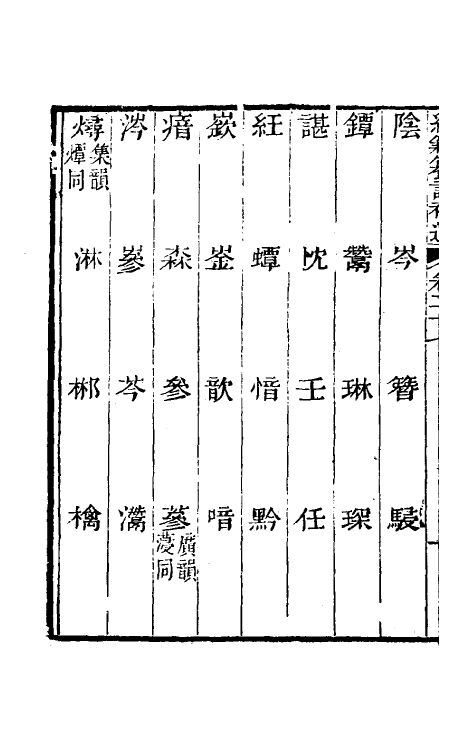 陰 岑 簪 駸
鐔 鬵 琳 琛
諶 忱 壬 任
紝 蟫 愔 黔
嶔 崟 歆 喑
瘖 森 參 蔘 廣韻薓同
涔 嵾 芩 灊
燖 集韻燂同 淋 郴 檎